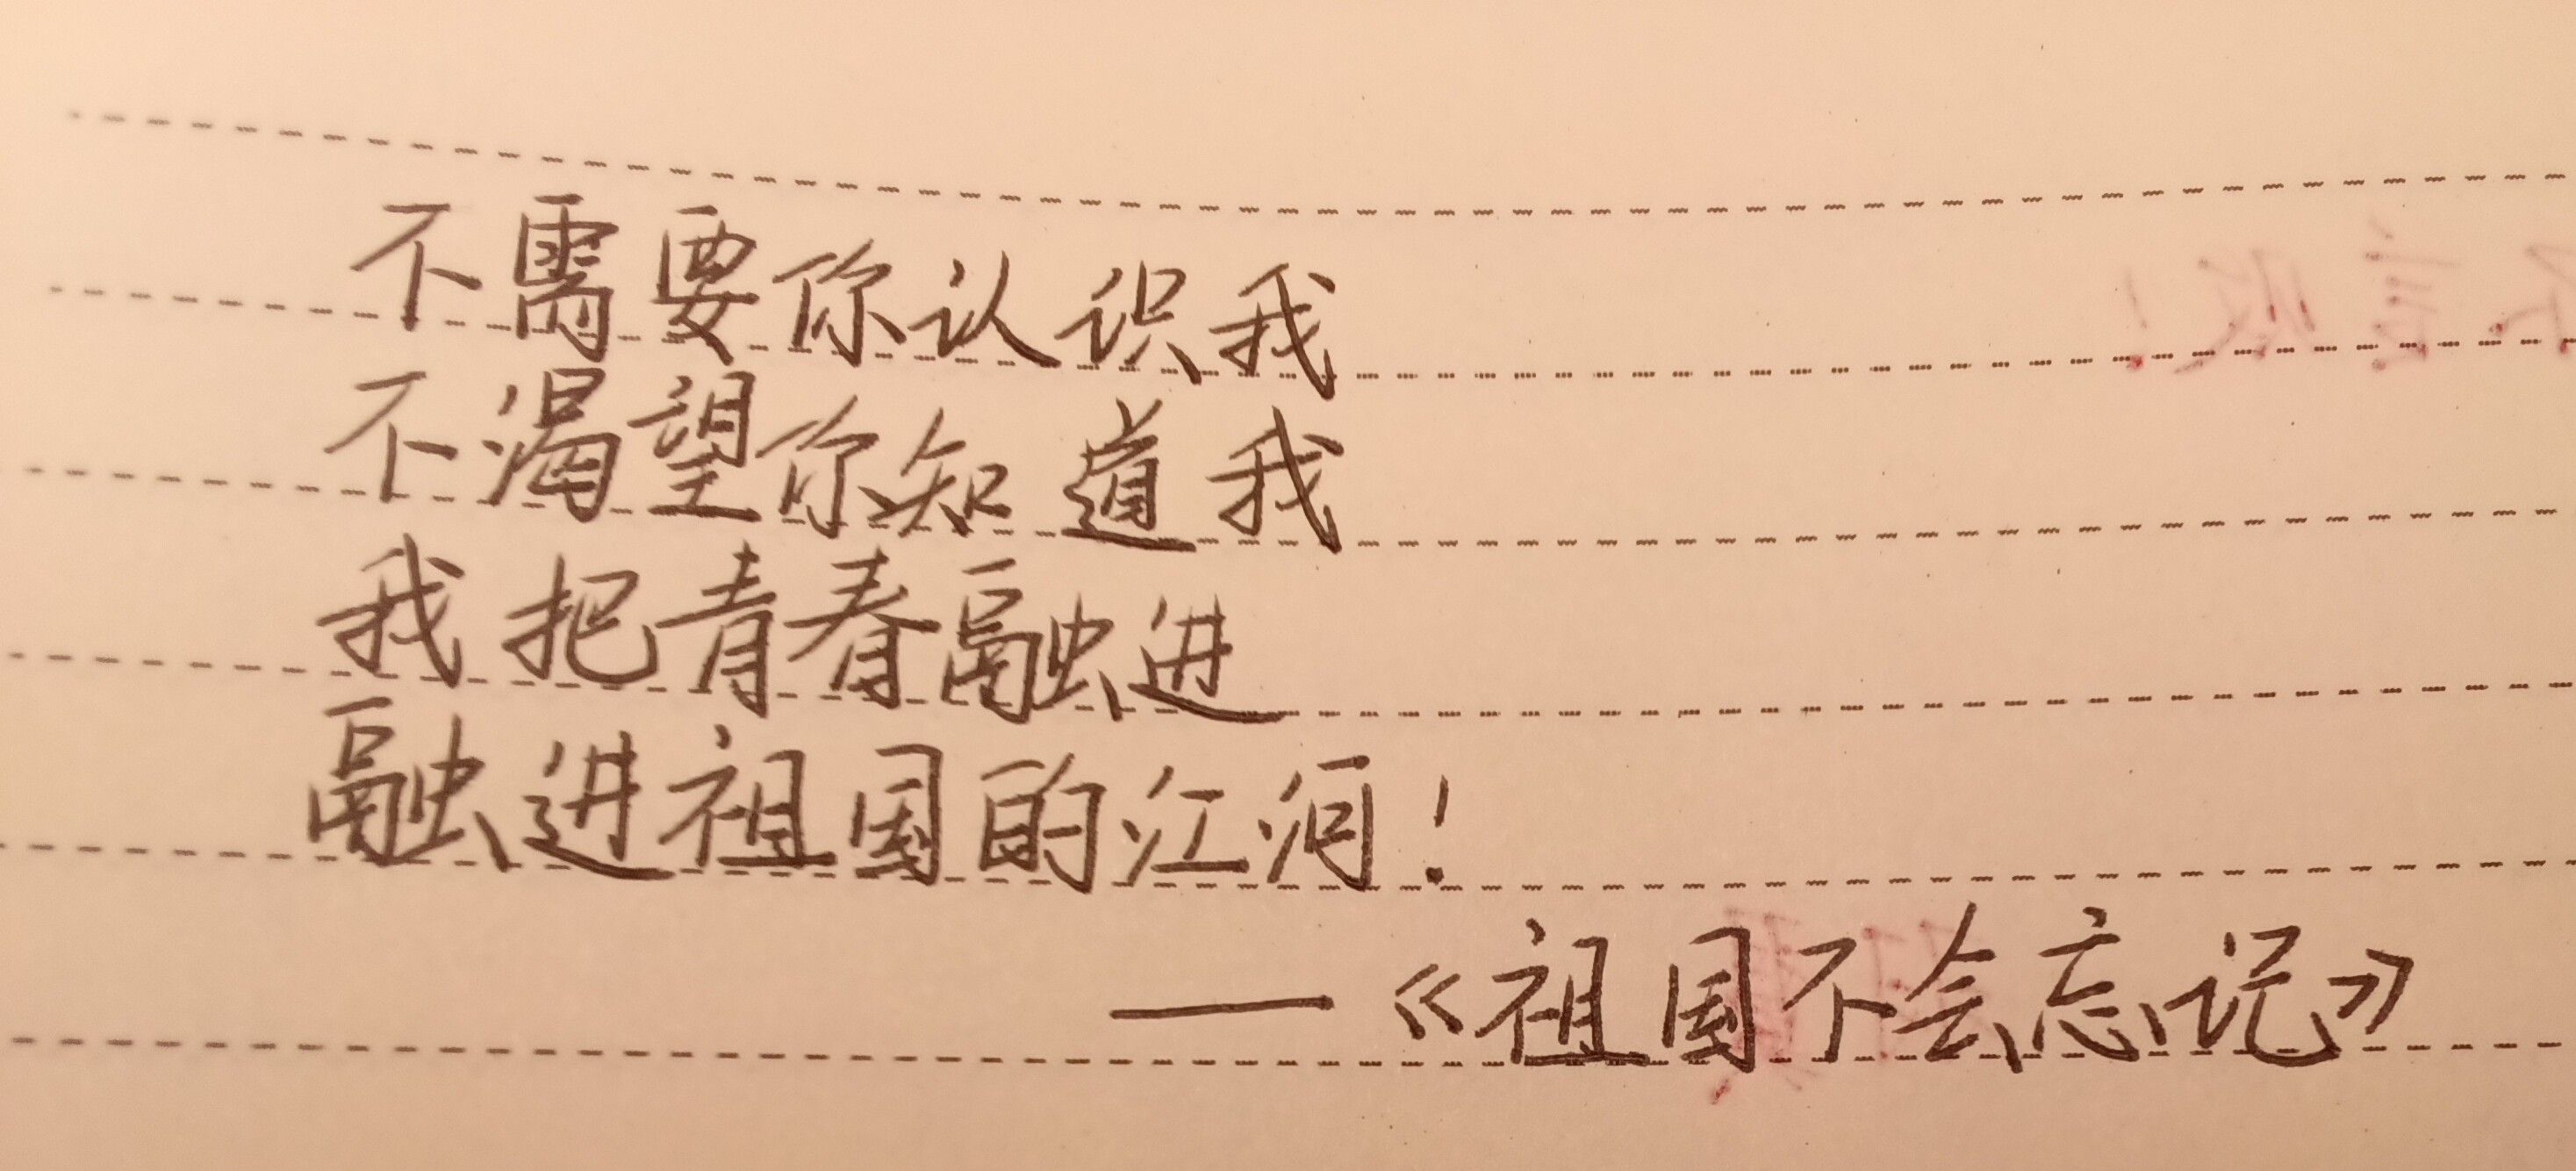 不需要你认识我
不渴望你知道我
我把青春融进
融进祖国的江河！
——《祖国不会忘记》